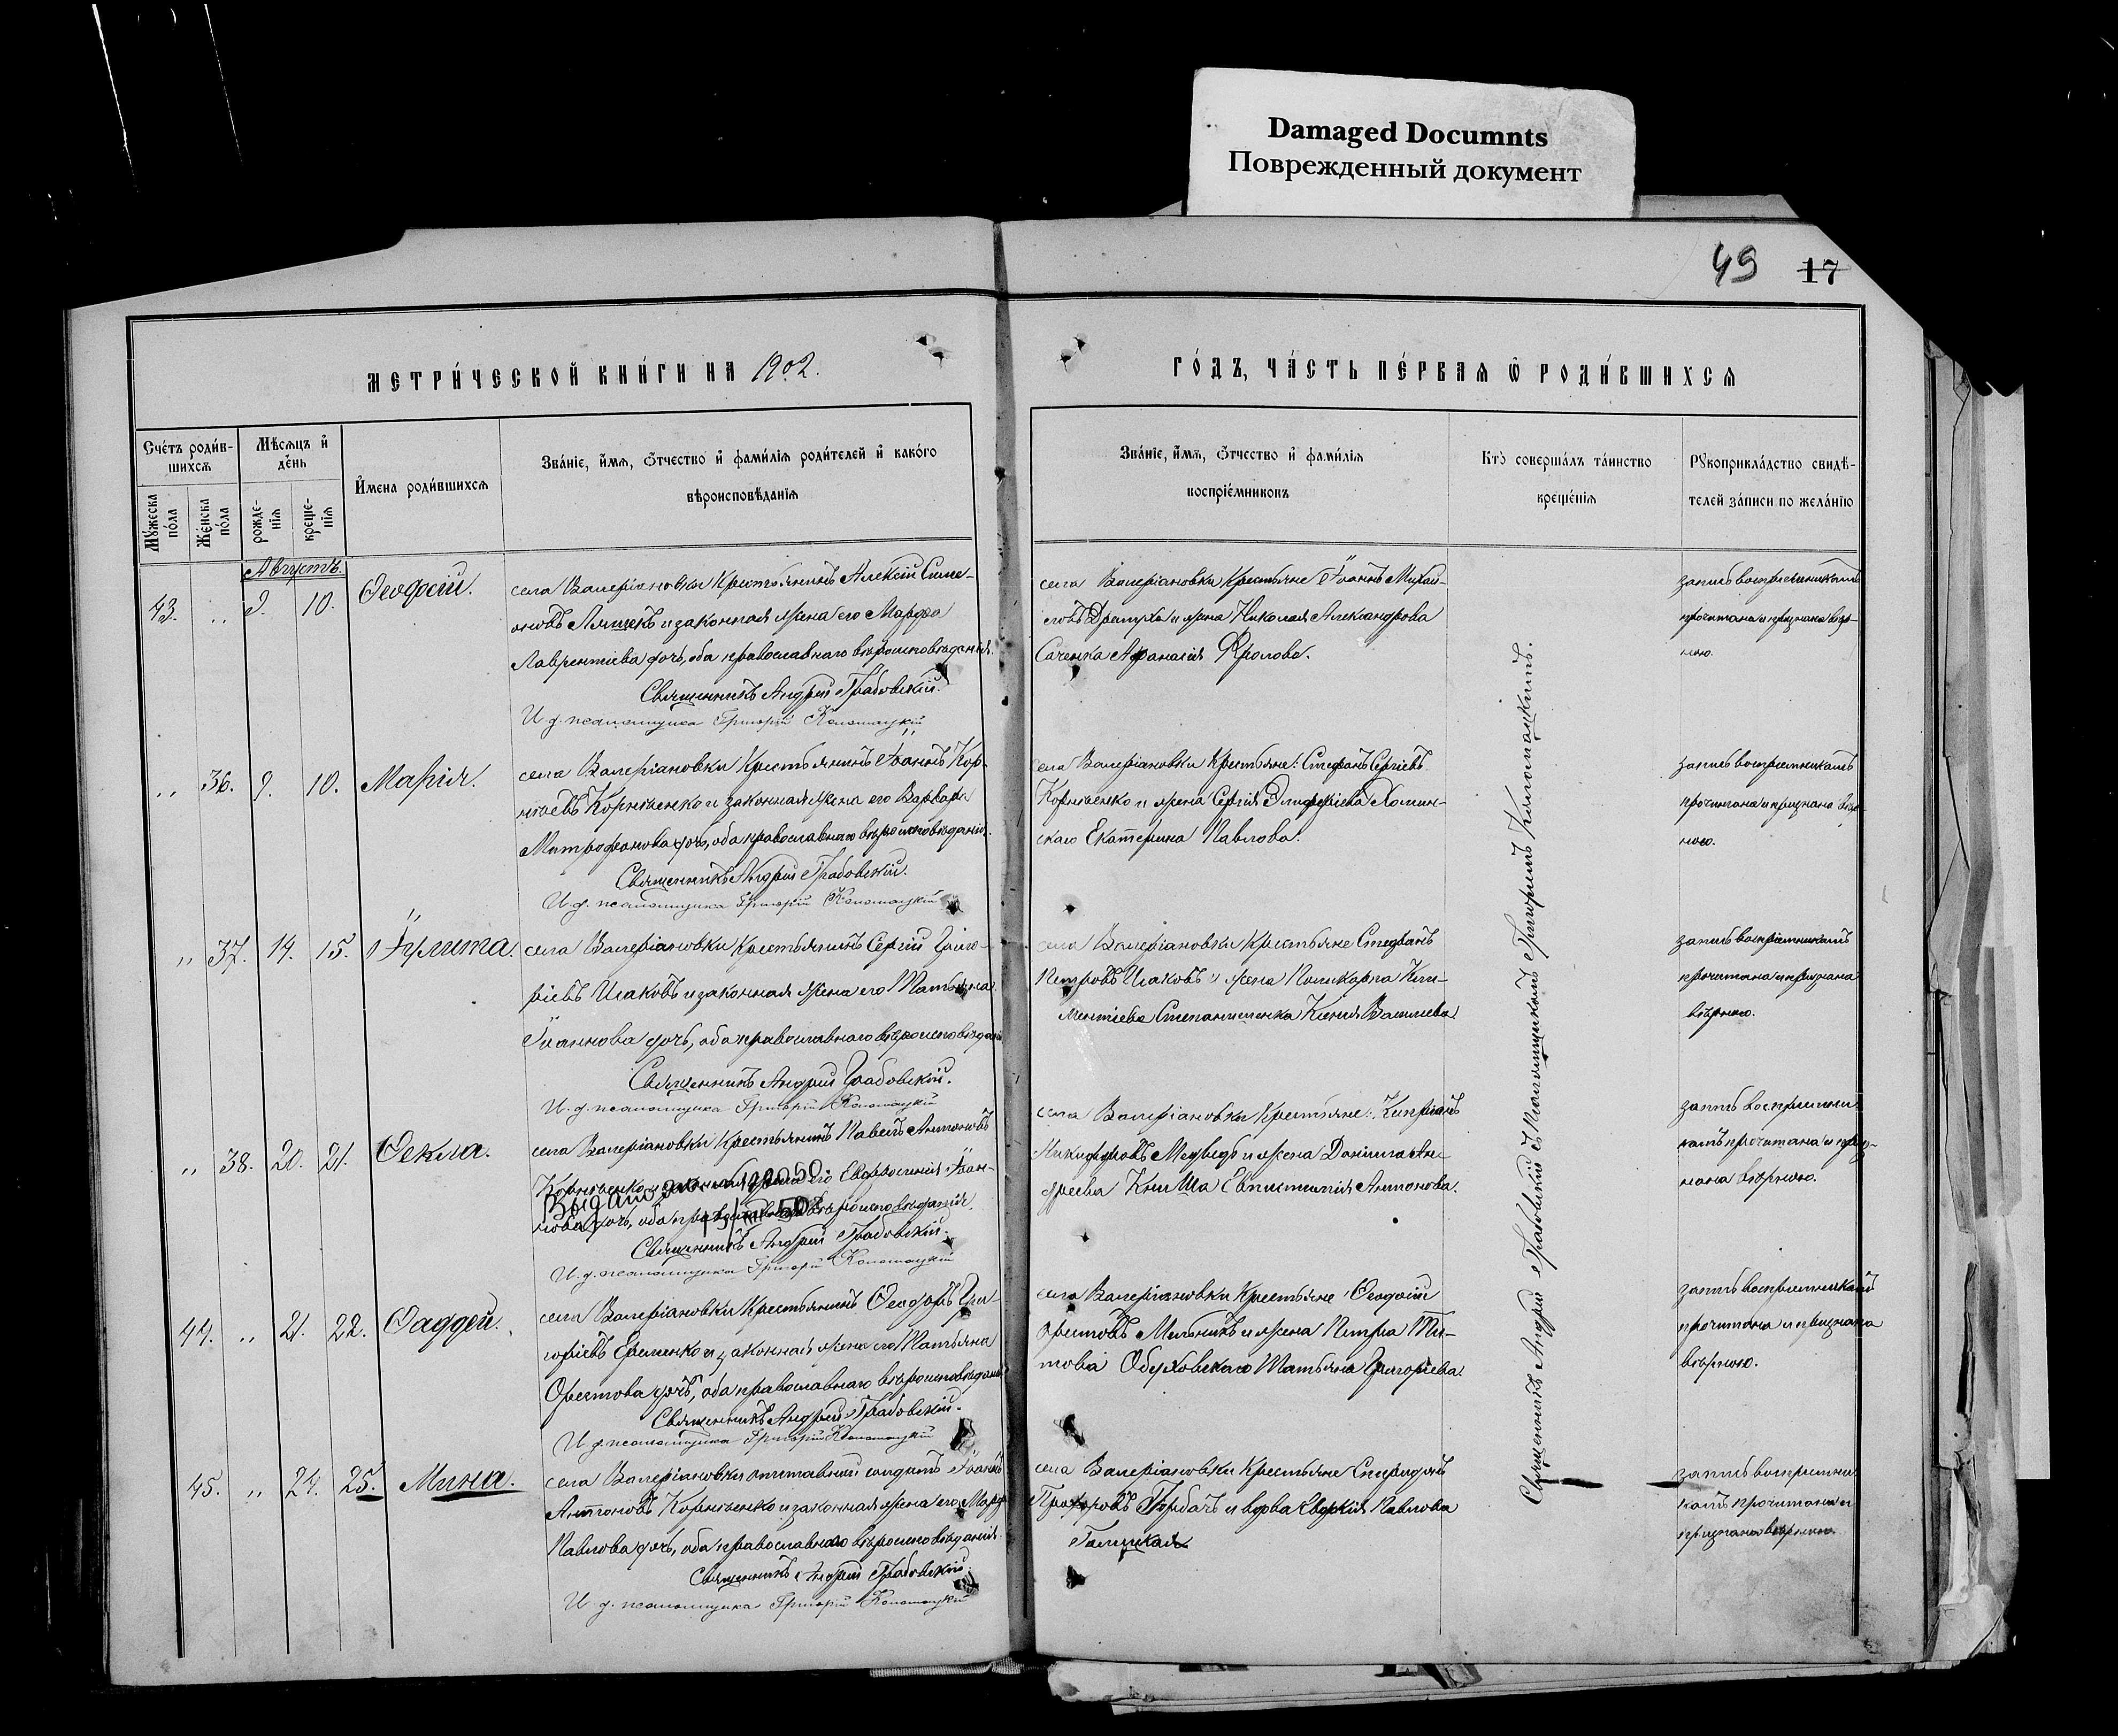 Damaged Documnts
Поврежденный документ
49 17
МЕТРИ́ЧЕСКОЙ КНИ́ГИ НА 1902.
ГО́ДЪ, ЧА́СТЬ ПЕ́РВАЯ Ѡ҆ РОДИ́ВШИХСѦ
Счéтъ роди́в-
шихсѧ
Мѣ́сѧцъ и҆
де́нь
И҆мена роди́вшихсѧ
Зва́нїе, и҆́мѧ, ѻ҆́тчество и҆ фами́лїѧ роди́телей и҆ како́го
вѣроисповѣ́данїѧ
Мꙋ́жеска
по́ла
Же́нска
по́ла
рожде́-
нїѧ
креще́-
нїѧ
Зва́нїе, и҆́мѧ, ѻ҆́тчество и҆ фами́лїѧ
воспрїе́мниковъ
Кто̀ соверша́лъ та́инство
креще́нїѧ
Рꙋкоприкла́дство свидѣ́-
телей за́писи по жела́нїю
Августъ.
43. „ 9. 10. Ѳеодосій.
села Валеріановки Крестьянинъ Алексій Симе-
оновъ Ляшекъ и законная жена его Марфа
Лаврентіева дочь, оба православнаго вѣроисповѣданія.
Священникъ Андрей Грабовскій.
И. д. псаломщика Григорій Коломацкій
села Валеріановки Крестьяне Іоаннъ Михаи-
ловъ и жена Николая Александрова
Саченка Афанасія Фролова.
запись воспріемникамъ
прочитана и признана вѣр-
ною.
„ 36. 9. 10. Марія.
села Валеріановки Крестьянинъ Іоаннъ Кор-
ніевъ Корніенко и законная жена его Варвара
Митрофанова дочь, оба православнаго вѣроисповѣданія.
Священникъ Андрей Грабовскій.
И. д. псаломщика Григорій Коломацкій
села Валеріановки Крестьяне: Стефанъ Сергіевъ
Корніенко и жена Сергія Елиферіева Хомин-
скаго Екатерина Павлова.
запись воспріемникамъ
прочитана и признана вѣр-
ною.
„ 37. 14. 15. Іулита.
села Валеріановки Крестьянинъ Сергій Григо-
ріевъ Исаковъ и законная жена его Татьяна
Іоаннова дочь, оба православнаго вѣроисповѣданія
Священникъ Андрей Грабовскій.
И. д. псаломщика Григорій Коломацкій
села Валеріановки Крестьяне Стефанъ
Петровъ Исаковъ и жена Поликарпа Кли-
ментіева Степанишенка Ксенія Васильева.
запись воспріемникамъ
прочитана и признана
вѣрною.
„ 38. 20. 21. Ѳекла.
села Валеріановки Крестьянинъ Павелъ Антоновъ
Корніенко и законная жена его Евфросинія Іоан-
нова дочь, оба православнаго вѣроисповѣданія.
Выдано
Священникъ Андрей Грабовскій.
И. д. псаломщика Григорій Коломацкій
села Валеріановки Крестьяне: Кипріанъ
Никифоровъ Медведь и жена Даніила Ан-
дреева Книша Евпистимія Антонова.
запись воспріемни-
камъ прочитана и приз-
нана вѣрною.
44. „ 21. 22. Ѳаддей.
села Валеріановки Крестьянинъ Ѳеодоръ Гри-
горіевъ Еременко и законная жена его Татьяна
Орестова дочь, оба православнаго вѣроисповѣданія
Священникъ Андрей Грабовскій.
И. д. псаломщика Григорій Коломацкій
села Валеріановки Крестьяне Ѳеодосій
Орестовъ Мельникъ и жена Петра Ти-
това Обуховскаго Татьяна Григорьева.
запись воспріемникамъ
прочитана и признана
вѣрною.
45. „ 24. 25. Мина.
села Валеріановки отставный солдатъ Іоаннъ
Антоновъ Корніенко и законная жена его Марфа
Павлова дочь, оба православнаго вѣроисповѣданія.
Священникъ Андрей Грабовскій
И. д. псаломщика Григорій Коломацкій
села Валеріановки Крестьяне Спиридонъ
Прохоровъ Горбачъ и вдова Евдокія Павлова
Галицкая
запись воспріемни-
камъ прочитана и
признана вѣрною.
Священникъ Андрей Грабовскій съ Псаломщикомъ Григоріемъ Коломацкимъ.